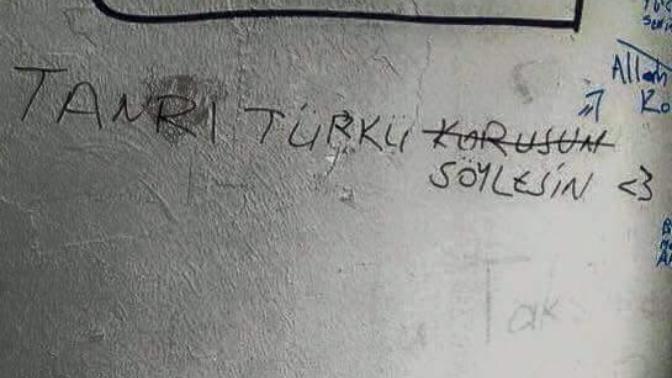 TANRI TÜRKÜ KORUSUN
SÖYLESİN <3
Allah
Ko
Tak